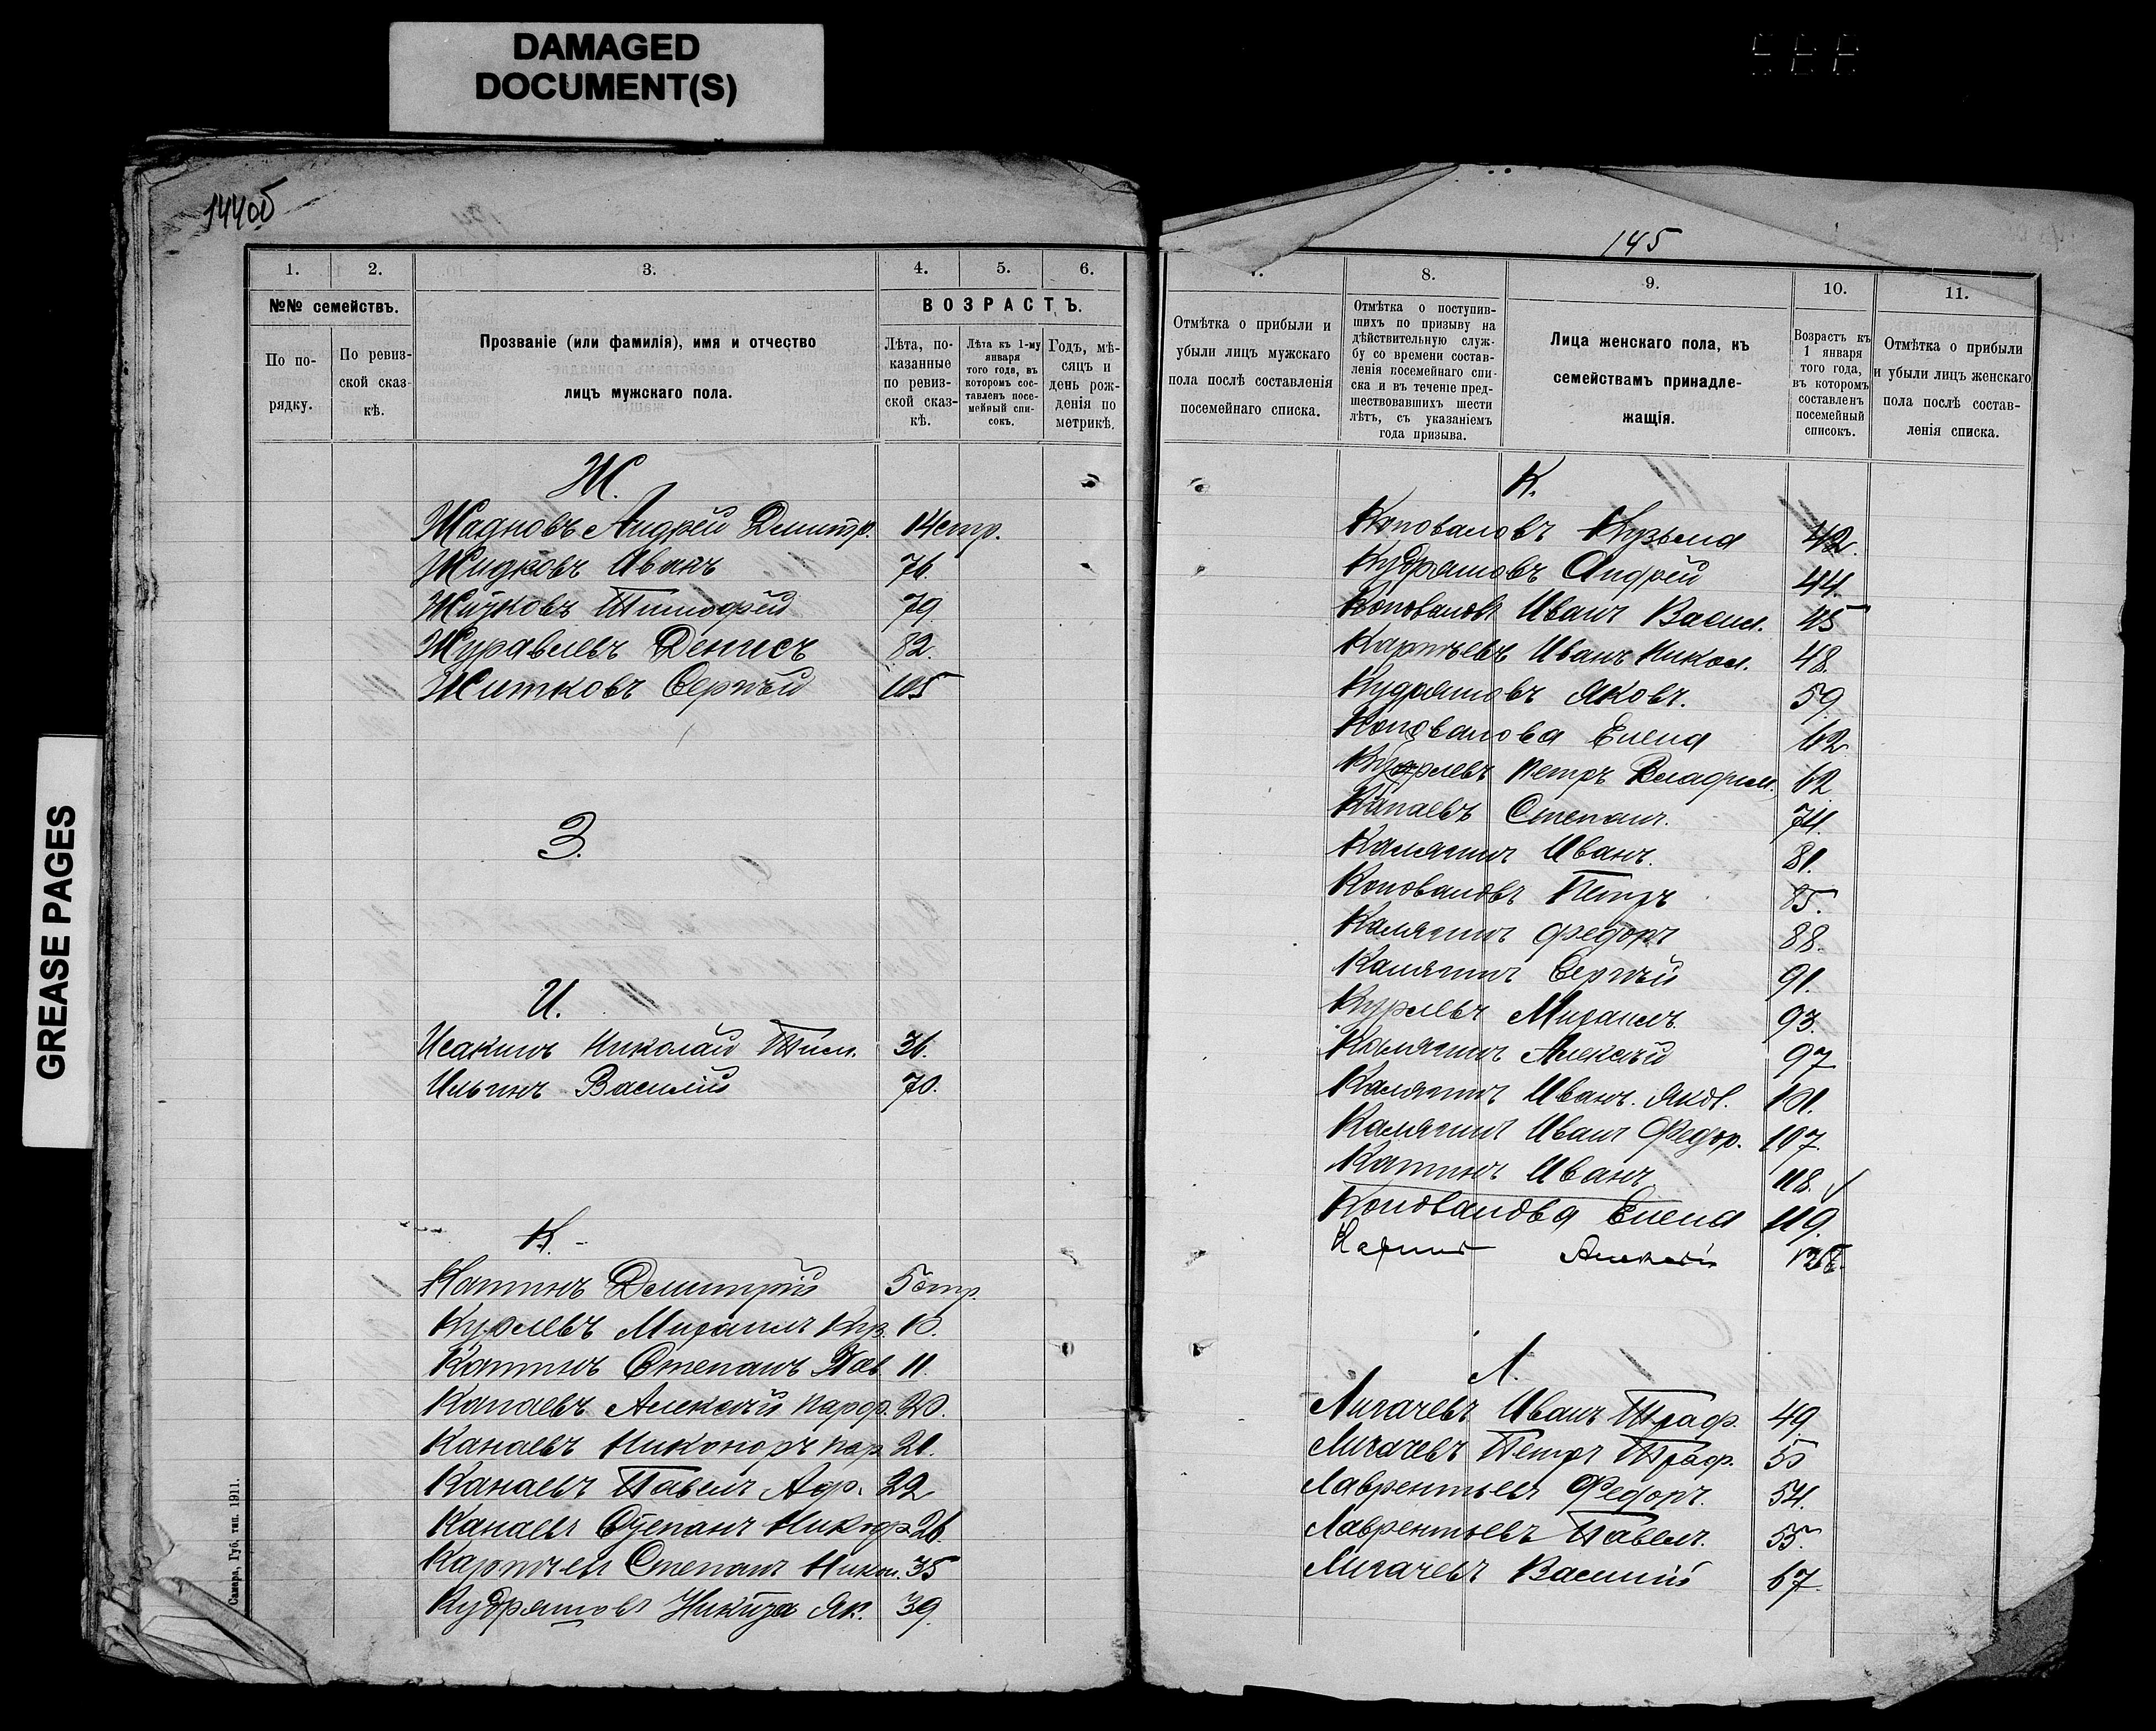 DAMAGED
DOCUMENT(S)
GREASE PAGES
144об
1.
2.
3.
4.
5.
6.
№№ семействъ.
ВОЗРАСТЪ.
По по-
рядку.
По ревиз-
ской сказ-
кѣ.
Прозваніе (или фамилія), имя и отчество
лицъ мужскаго пола.
Лѣта, по-
казанные
по ревиз-
ской сказ-
кѣ.
Лѣта къ 1-му
января
того года, въ
которомъ сос-
тавленъ посе-
мейный спи-
сокъ.
Годъ, мѣ-
сяцъ и
день рож-
денія по
метрикѣ.
Ж.
Жадновъ Андрей Дмитр. 14 стр.
Жидковъ Иванъ 76.
Жидковъ Тимофей 79.
Журавлевъ Денисъ 82.
Житковъ Сергѣй 105
З.
И.
Исакинъ Николай Тим. 36.
Ильинъ Василій 70.
К.
Катинъ Дмитрій 5 стр.
Курлевъ Михаилъ Куз. 10.
Катинъ Степанъ Пав 11.
Канаевъ Алексѣй Парф. 20.
Канаевъ Никоноръ Пар 21.
Канаевъ Павелъ Адр. 22
Канаевъ Степанъ Никиф 26.
Карпѣевъ Степанъ Никол. 35
Кудряшовъ Никита Як. 39.
Самара, Губ. тип. 1911.
145
8.
9.
10.
11.
Отмѣтка о прибыли и
убыли лицъ мужскаго
пола послѣ составленія
посемейнаго списка.
Отмѣтка о поступив-
шихъ по призыву на
дѣйствительную служ-
бу со времени состав-
ленія посемейнаго спи-
ска и въ теченіе пред-
шествовавшихъ шести
лѣтъ, съ указаніемъ
года призыва.
Лица женскаго пола, къ
семействамъ принадле-
жащія.
Возрастъ къ
1 января
того года,
въ которомъ
составленъ
посемейный
списокъ.
Отмѣтка о прибыли
и убыли лицъ женскаго
пола послѣ состав-
ленія списка.
К.
Коноваловъ Кузьма 42.
Кудряшовъ Андрей 44.
Коноваловъ Иванъ Васил. 45
Карпѣевъ Иванъ Никол. 48.
Кудряшовъ Яковъ. 59.
Коновалова Елена 62
Курлевъ Петръ Владим. 62
Канаевъ Степанъ. 74.
Калягинъ Иванъ. 81.
Коноваловъ Петръ 85.
Калягинъ Федоръ 88.
Калягинъ Сергѣй 91.
Курлевъ Михаилъ 93.
Калягинъ Алексѣй 97
Калягинъ Иванъ. Яков. 101.
Калягинъ Иванъ Федор. 107.
Катинъ Иванъ 118.
Коновалова Елена 119.
Алексѣй
Л.
Лигачевъ Иванъ Траф. 49.
Лигачевъ Петръ Траф. 50
Лаврентьевъ Федоръ. 54.
Лаврентьевъ Павелъ. 55.
Лигачевъ Василій 67.